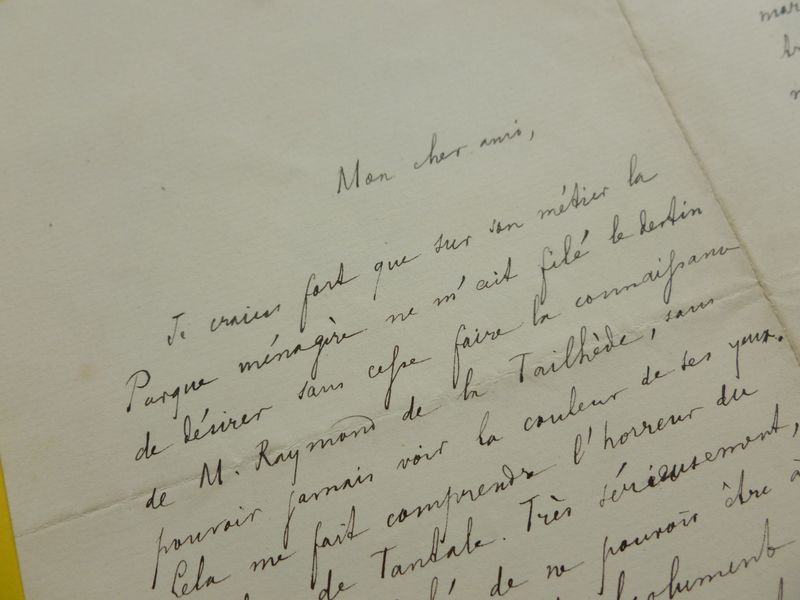 Mon cher ami,
Je crains fort que sur son métier la
Parque ménagère ne m'ait filé le destin
de désirer sans cesse faire la connaissance
de M. Raymond de la Tailhède, sans
pouvoir jamais voir la couleur de ses yeux.
Cela me fait comprendre l'horreur du
de Tantale. Très sérieusement,
de ne pouvoir être à
mar